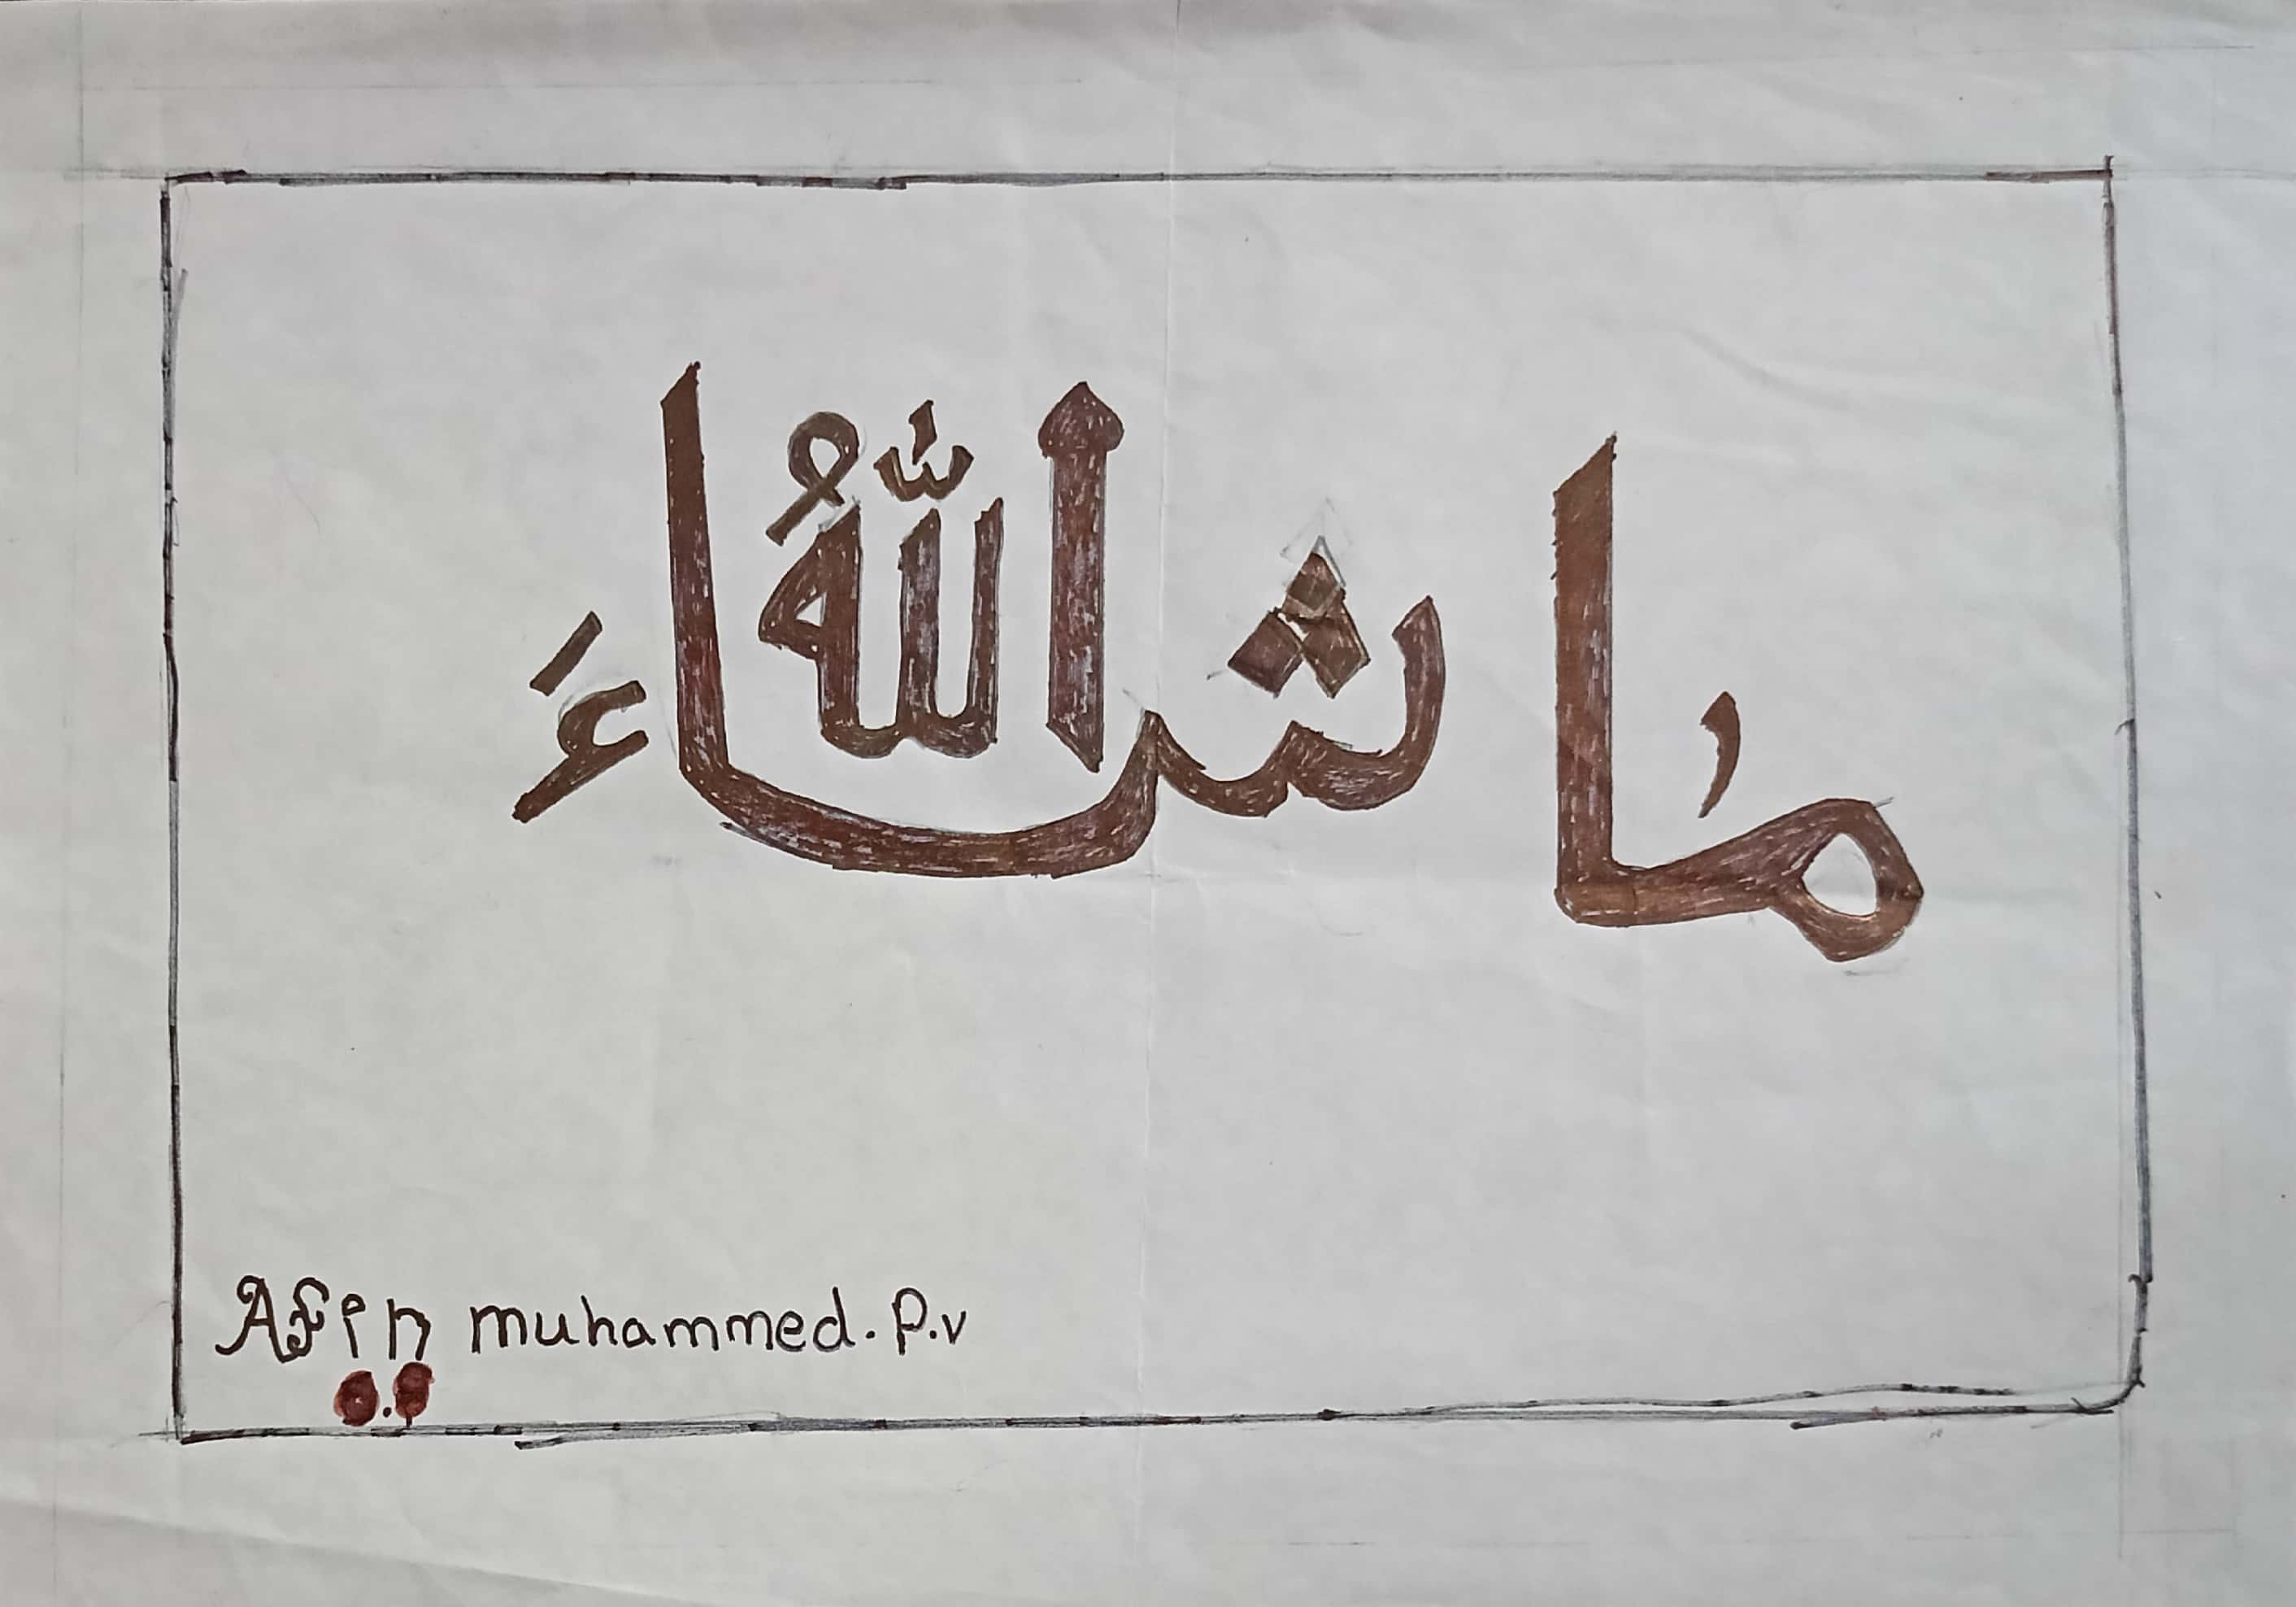 ما شاءَ اللّٰهُ
Afin muhammed. P.v